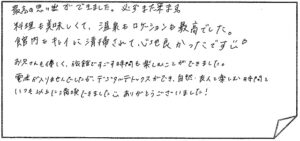 最高の思い出ができました。必ずまた来ます
料理も美味しくて、温泉もロケーションも最高でした。
館内もキレイに清掃されて、心地良かったです。
お兄さんも優しく、旅館ですごす時間も楽しむことができました。
電波が入りませんでしたが、デジタルデトックスができ、自然、友人と楽しむ時間を
いつも以上に満喫できました。ありがとうございました！